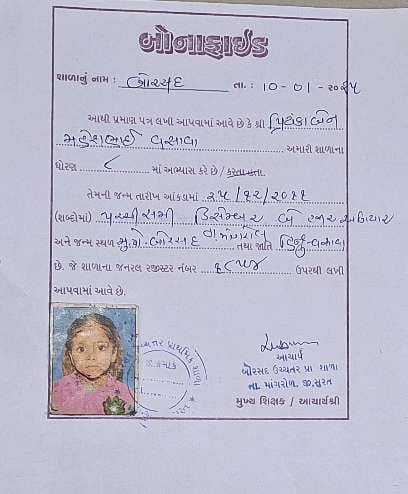 બોનાફાઈડ
શાળાનું નામ : બોરસદ તા. : ૧૦ - ૦૧ - ૨૦૨૫
આથી પ્રમાણ પત્ર લખી આપવામાં આવે છે કે શ્રી પ્રિયંકાબેન
મહેશભાઈ વસાવા અમારી શાળાના
ધોરણ ૮ માં અભ્યાસ કરે છે / કરતા હતા.
તેમની જન્મ તારીખ આંકડામાં ૨૫/૧૨/૨૦૧૧
(શબ્દોમાં) પચ્ચીસમી ડિસેમ્બર બે હજાર અગિયાર
અને જન્મ સ્થળ મુ.પો. બોરસદ તા. માંગરોલ તથા જાતિ હિન્દુ-વસાવા
છે. જે શાળાના જનરલ રજીસ્ટર નંબર ઉપરથી લખી
આપવામાં આવે છે.
ઉચ્ચતર પ્રાથમિક શાળા
આચાર્ય
બોરસદ ઉચ્ચતર પ્રા શાળા
તા. માંગરોળ, જી.સુરત
મુખ્ય શિક્ષક / આચાર્યશ્રી